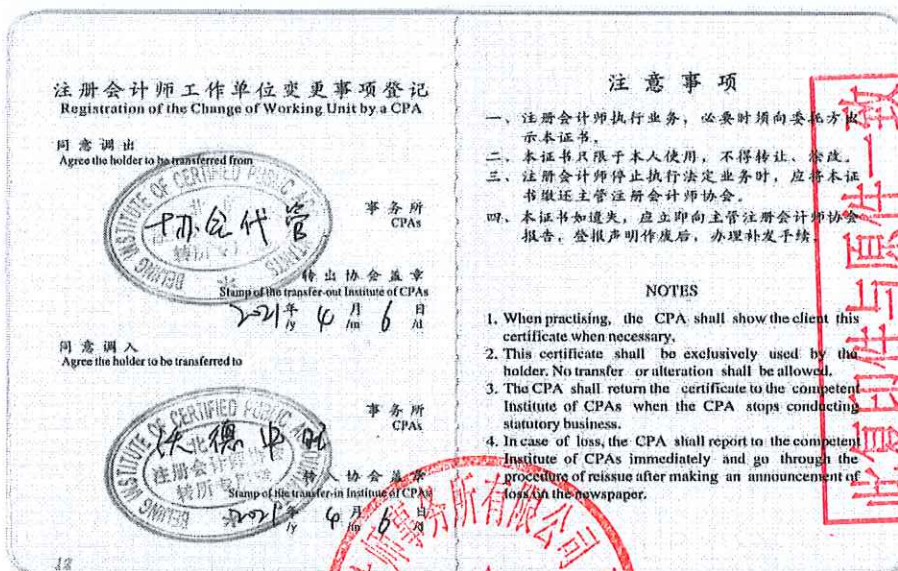 注册会计师工作单位变更事项登记
Registration of the Change of Working Unit by a CPA
同意调出
Agree the holder to be transferred from
BEIJING INSTITUTE OF CERTIFIED PUBLIC
协会代管
事务所
CPAs
转出协会盖章
Stamp of the transfer-out Institute of CPAs
2021年 4 月 6 日
/y /m /d
同意调入
Agree the holder to be transferred to
INSTITUTE OF CERTIFIED PUBLIC
注册会计师协会
转所专用
事务所
CPAs
转入协会盖章
Stamp of the transfer-in Institute of CPAs
2021年 4 月 6 日
/y /m /d
注意事项
一、注册会计师执行业务,必要时须向委托方出
示本证书。
二、本证书只限于本人使用,不得转让、涂改。
三、注册会计师停止执行法定业务时,应将本证
书缴还主管注册会计师协会。
四、本证书如遗失,应立即向主管注册会计师协会
报告,登报声明作废后,办理补发手续。
NOTES
1. When practising, the CPA shall show the client this
certificate when necessary.
2. This certificate shall be exclusively used by the
holder. No transfer or alteration shall be allowed.
3. The CPA shall return the certificate to the competent
Institute of CPAs when the CPA stops conducting
statutory business.
4. In case of loss, the CPA shall report to the competent
Institute of CPAs immediately and go through the
procedure of reissue after making an announcement of
loss on the newspaper.
此复印件与原件一致
师事务所有限公司